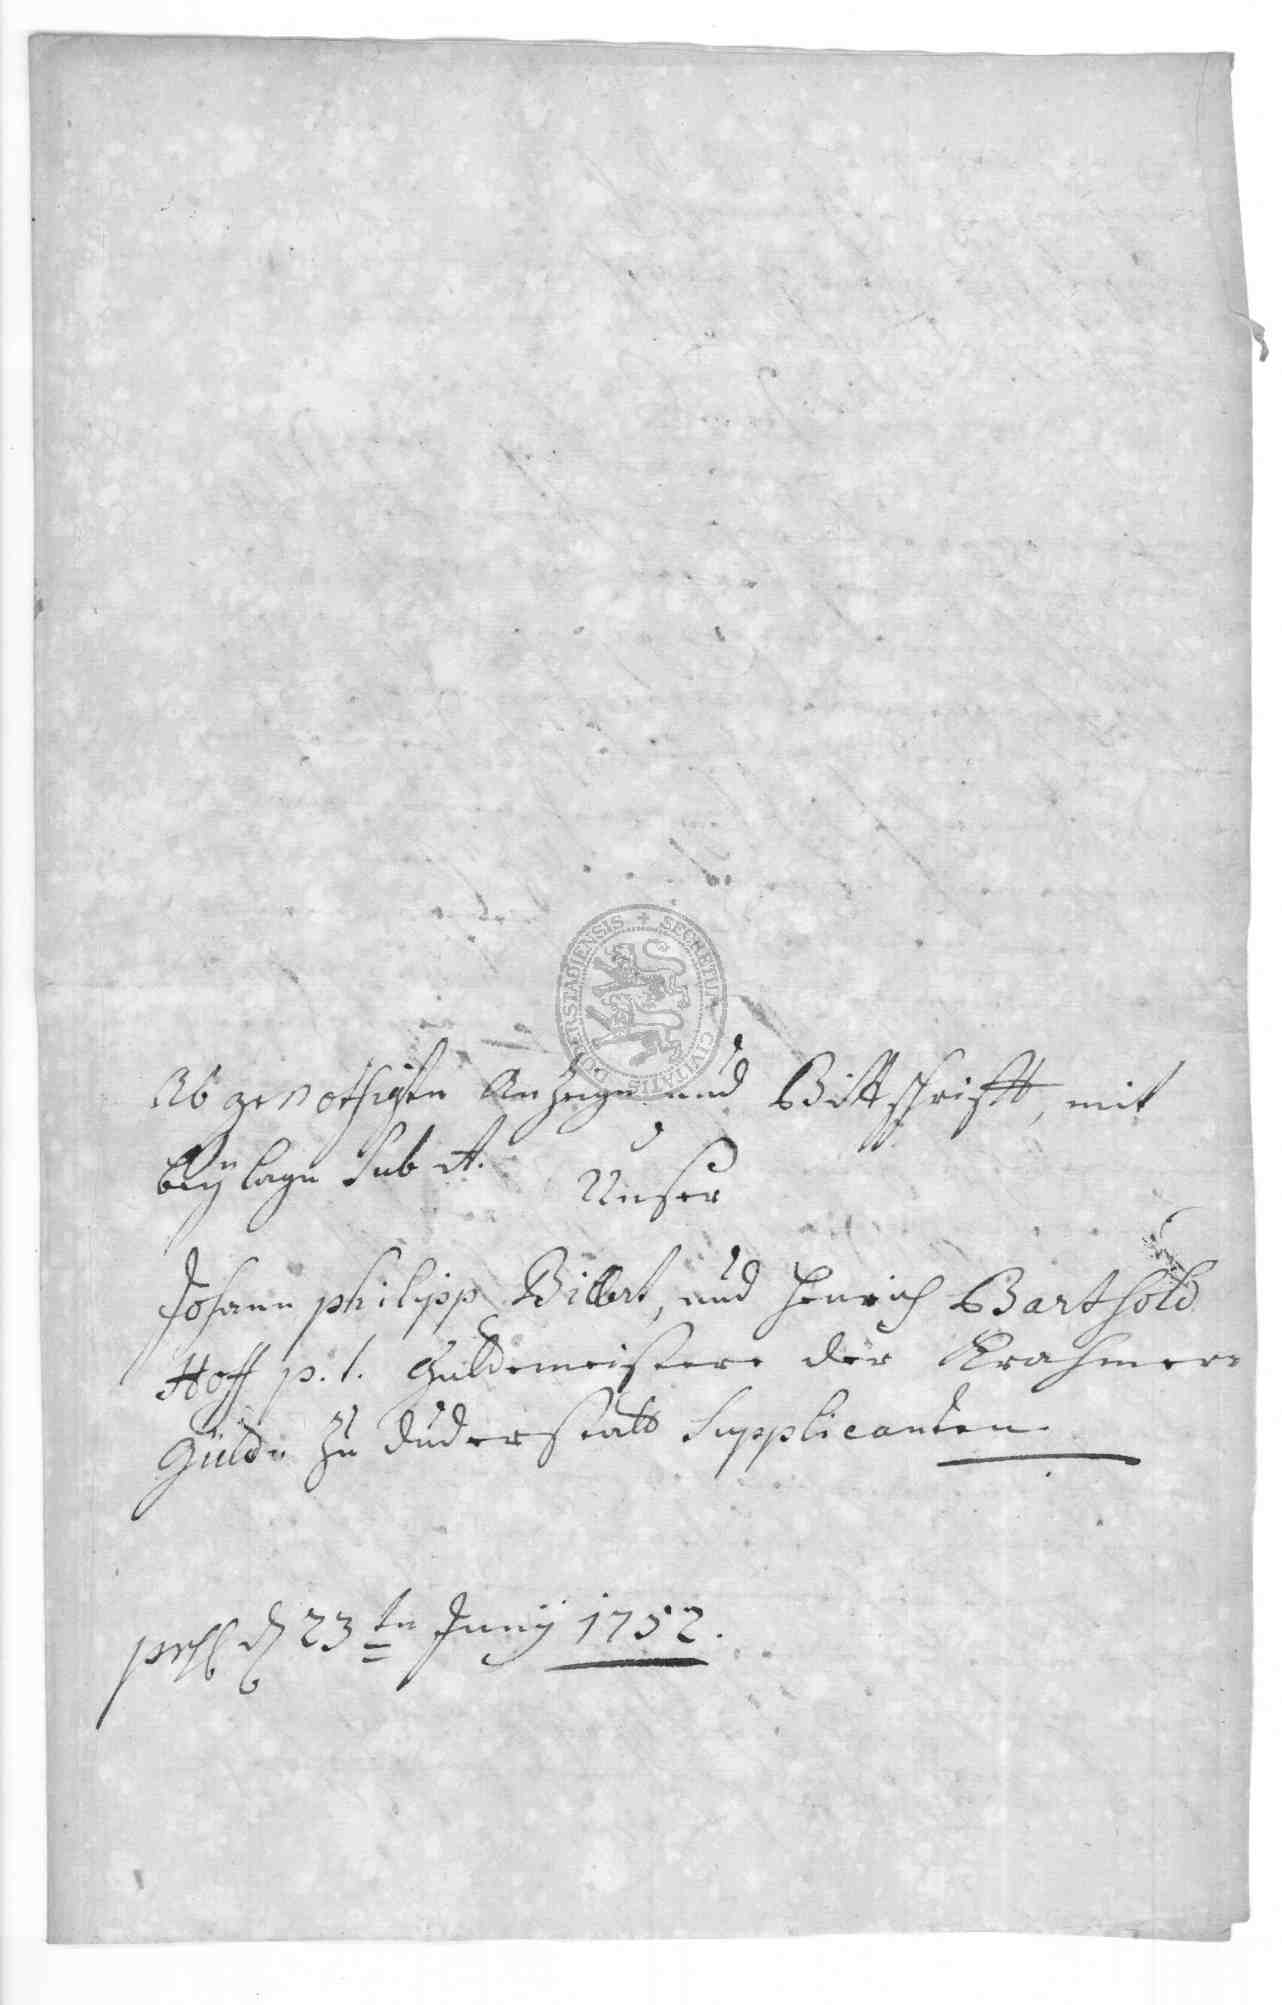 SECRETUM CIVITATIS DUDERSTADIENSIS
Abgenothigte Anzeige und Bittschrifft, mit
beÿlage Sub A.
Unser
Johann philipp Billert, und Henrich Barthold
Hoff p. t. Guldemeistere der Krahmer
Gülde zu Duderstatt Supplicanten
d 23ten Junÿ 1752.